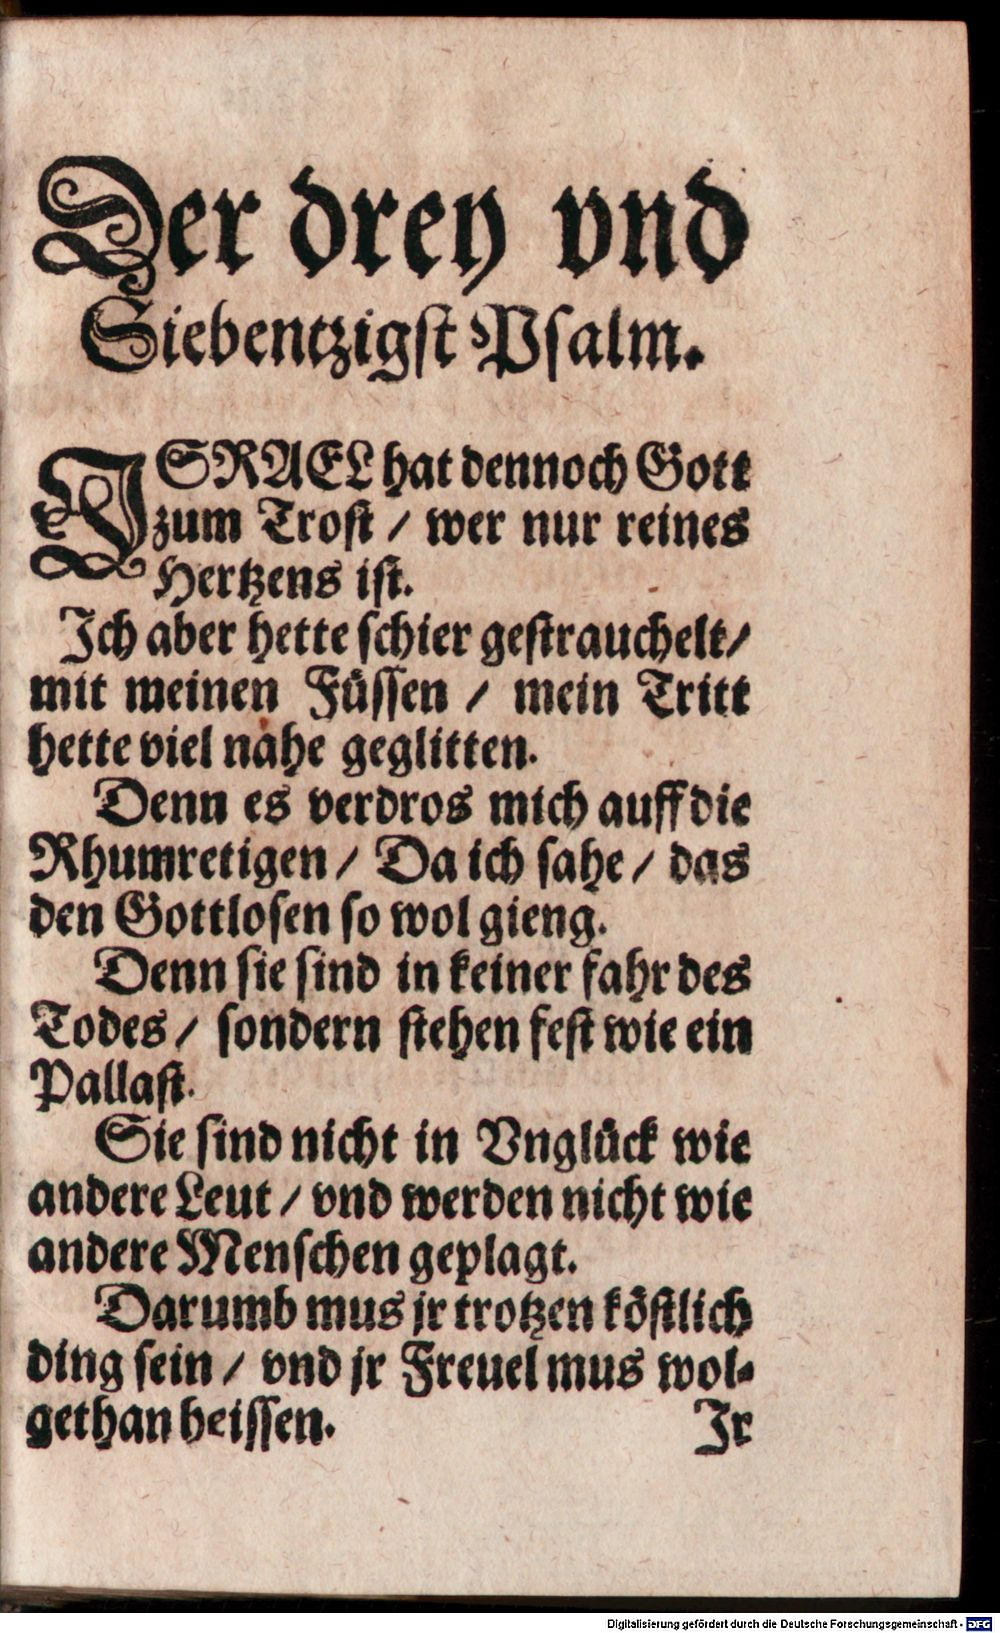 Der drey vnd
Siebentzigst Psalm.
ISRAEL hat dennoch Gott
zum Trost / wer nur reines
Hertzens ist.
Ich aber hette schier gestrauchelt/
mit meinen Füssen / mein Tritt
hette viel nahe geglitten.
Denn es verdros mich auff die
Rhumretigen / Da ich sahe / das
den Gottlosen so wol gieng.
Denn sie sind in keiner fahr des
Todes / sondern stehen fest wie ein
Pallast.
Sie sind nicht in Vnglück wie
andere Leut / vnd werden nicht wie
andere Menschen geplagt.
Darumb mus jr trotzen köstlich
ding sein / vnd jr Freuel mus wol-
gethan heissen.
Ir
Digitalisierung gefördert durch die Deutsche Forschungsgemeinschaft - DFG